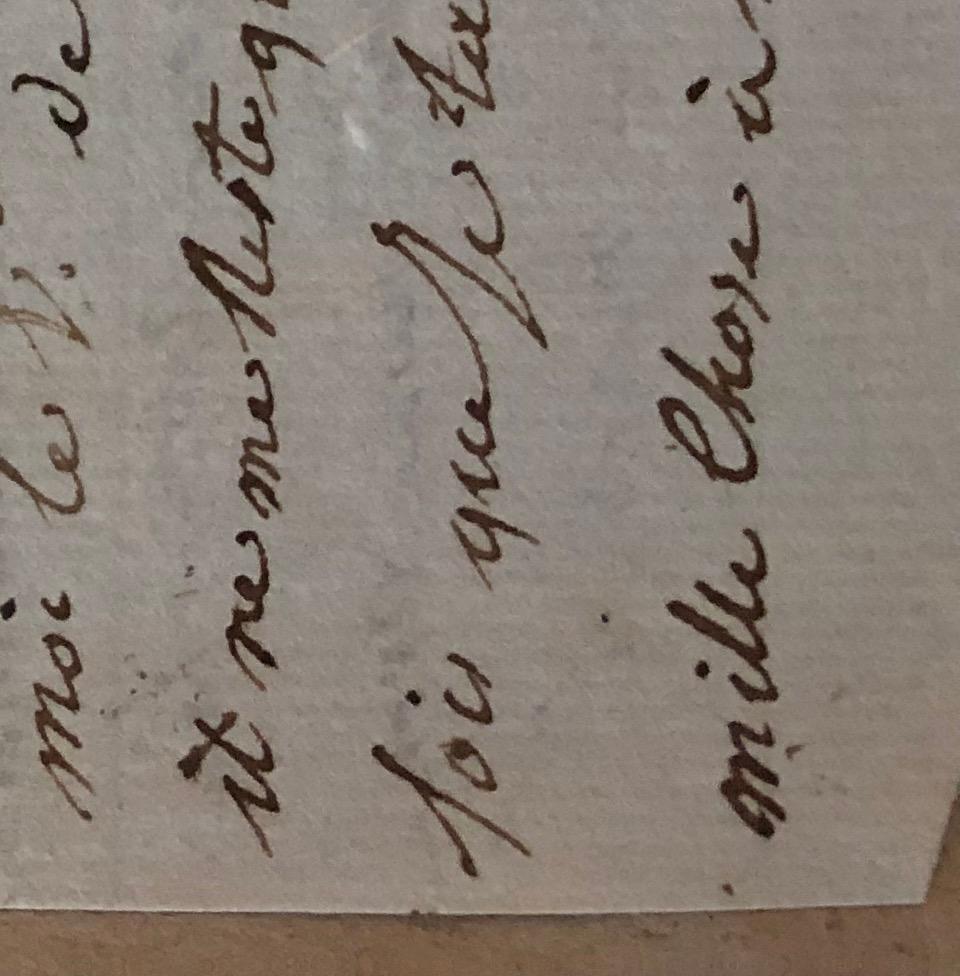 moi le V. de
it ne me Reste q
fois que Je
mille Chose à